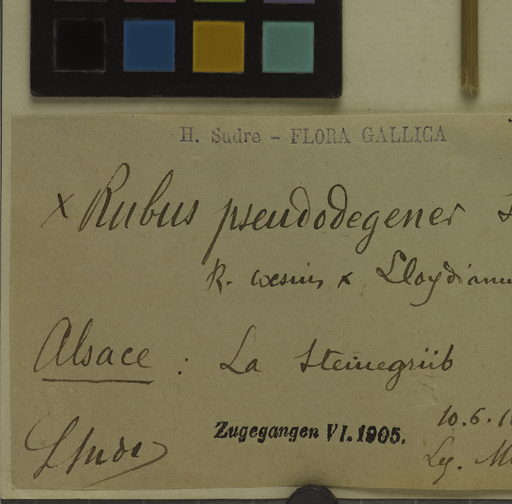 H. Sudre - FLORA GALLICA
x Rubus pseudodegener
R. cæsius x Lloydianu
Alsace : La Steinegrüb
Zugegangen VI. 1905.
10.6.1
HSudre
Leg. M